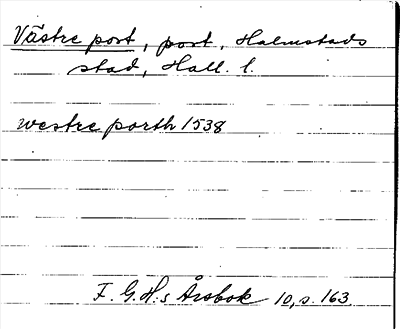 Västre port, port, Halmstads
stad, Hall. l.
westre porth 1538
F. G. H:s Årsbok 10, s. 163